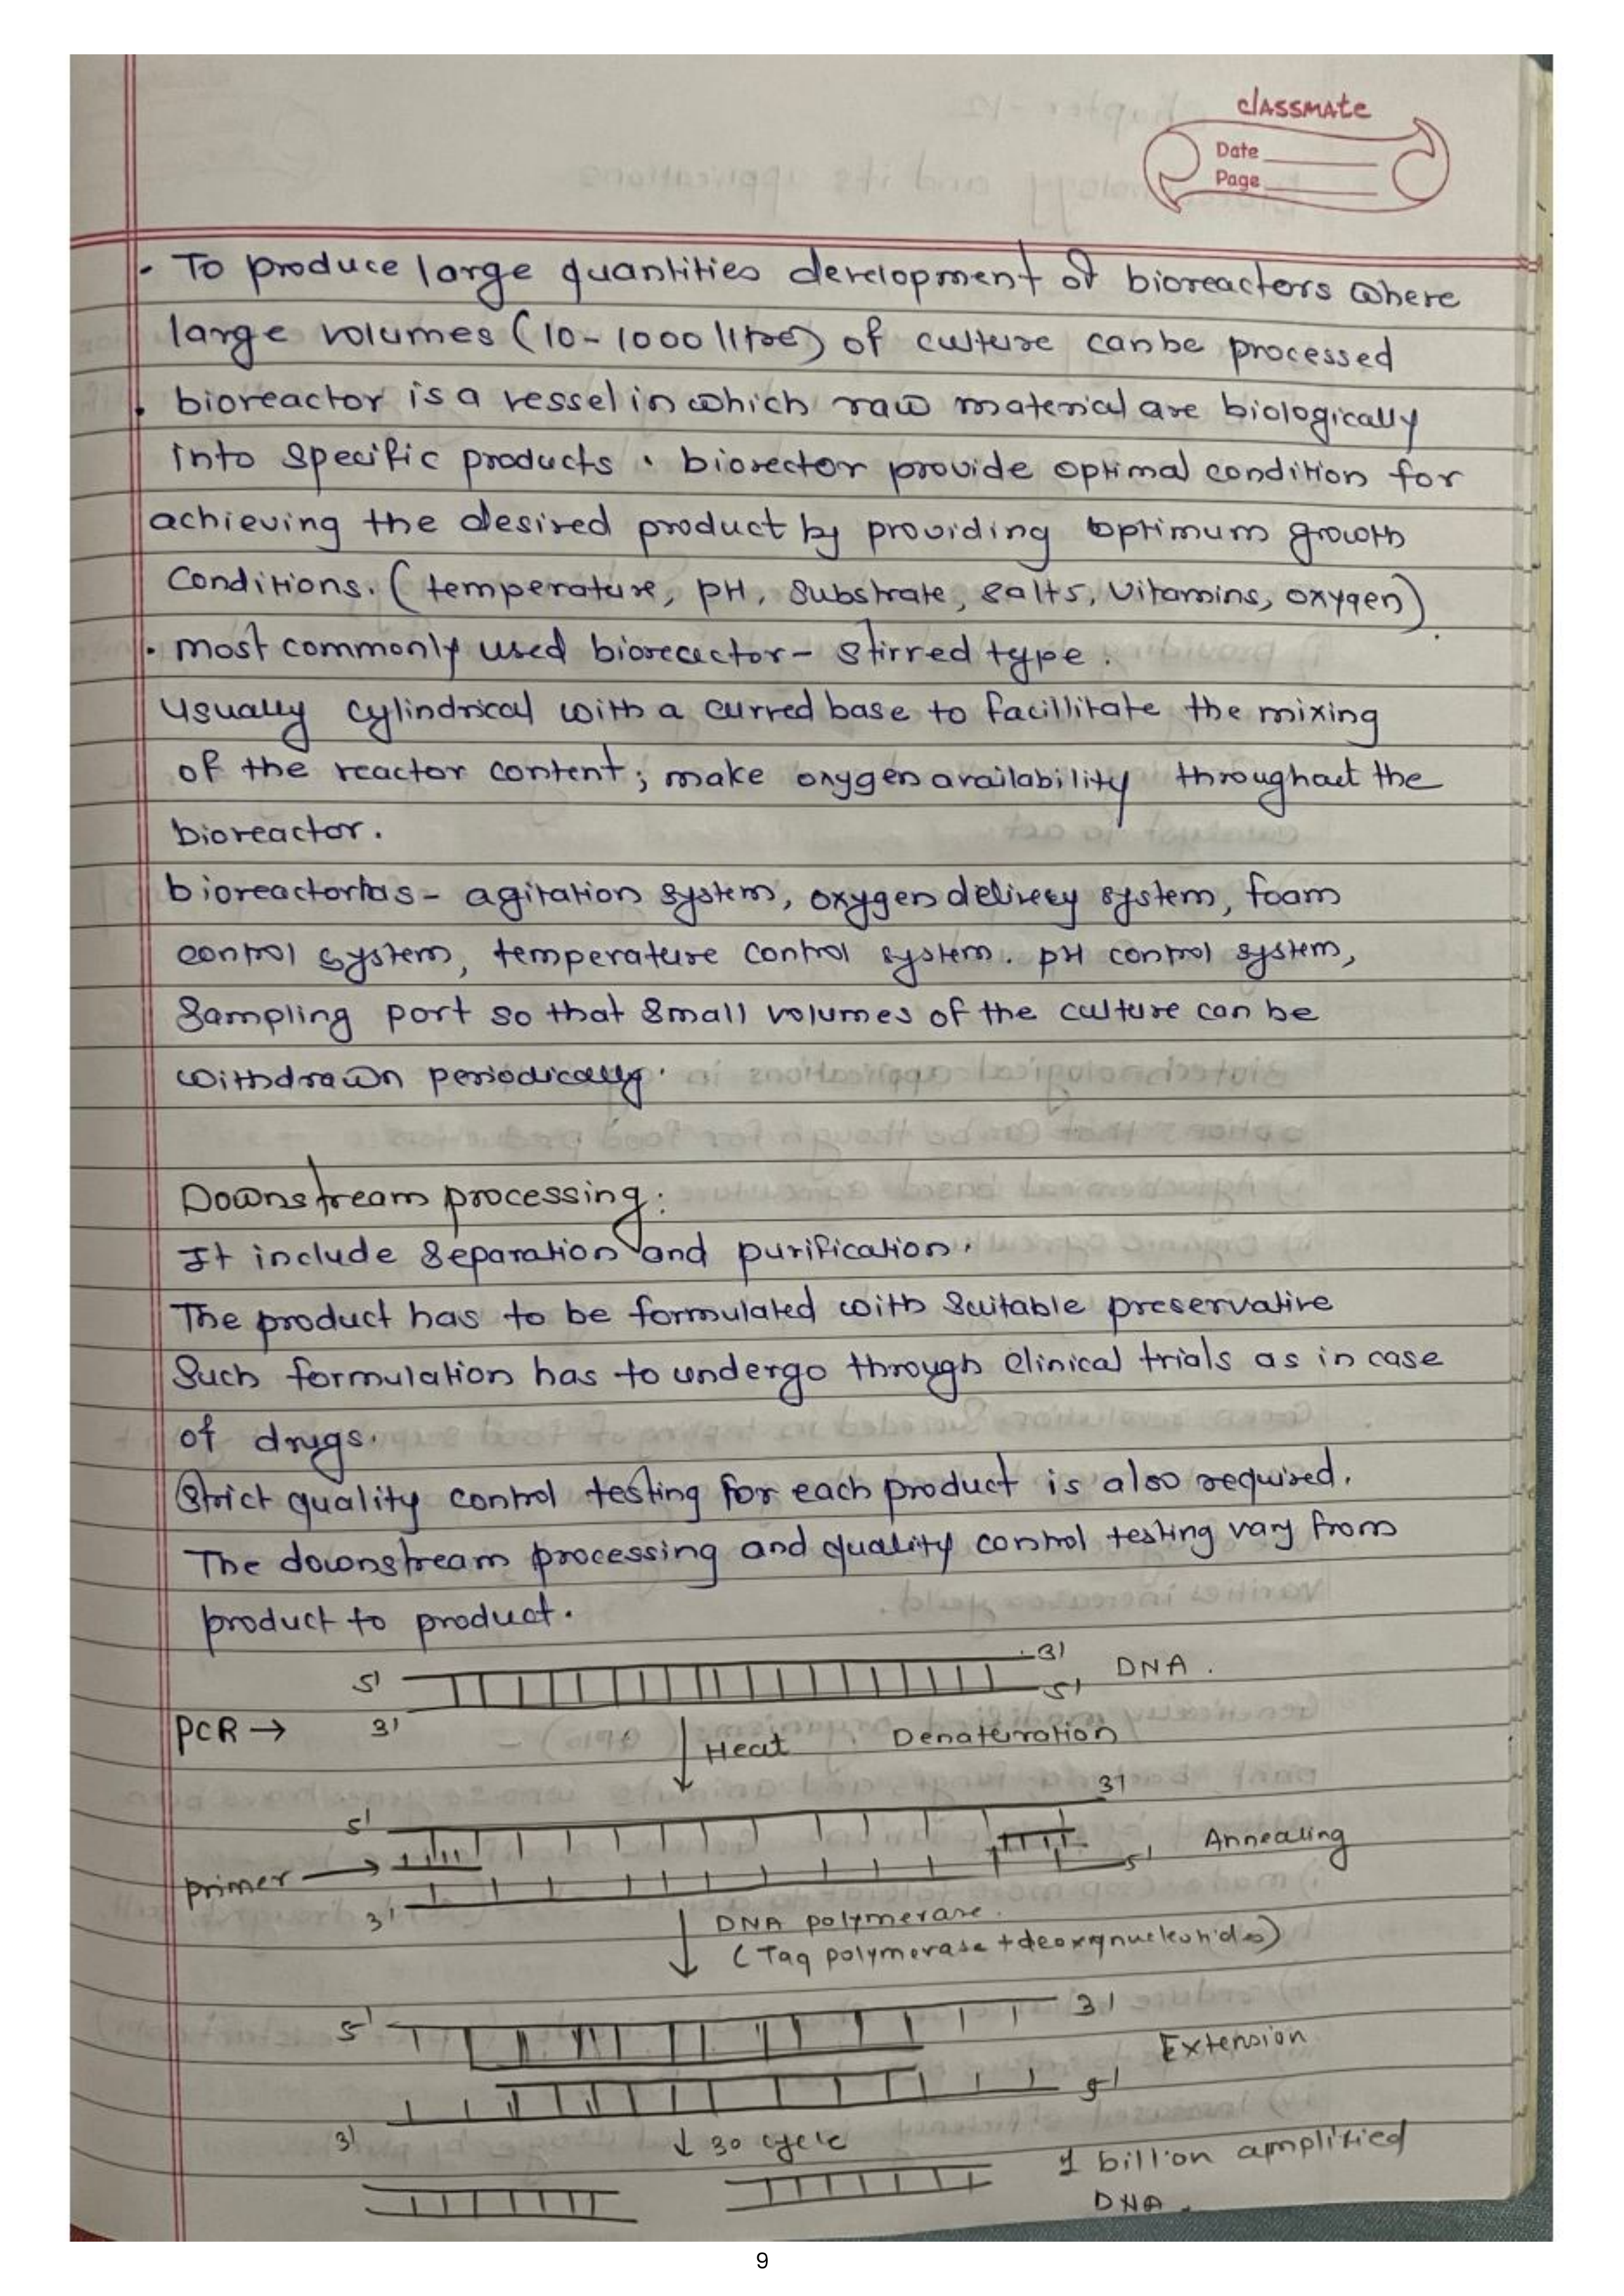 classmate
Date
Page
• To produce large quantities development of bioreactors where
large volumes (10-1000 litre) of culture can be processed
• bioreactor is a vessel in which raw material are biologically
into specific products. biorector provide optimal condition for
achieving the desired product by providing optimum growth
Conditions. (temperature, pH, Substrate, salts, vitamins, oxygen).
• most commonly used bioreactor - stirred type.
Usually cylindrical with a curved base to facillitate the mixing
of the reactor content; make oxygen availability throughout the
bioreactor.
bioreactor has - agitation system, oxygen delivery system, foam
control system, temperature control system. pH control system,
Sampling port so that small volumes of the culture can be
withdrawn periodically.
Downstream processing:
It include Separation and purification.
The product has to be formulated with suitable preservative
Such formulation has to undergo through Clinical trials as in case
of drugs.
Strict quality control testing for each product is also required.
The downstream processing and quality control testing vary from
product to product.
5' 3' DNA.
5'
PCR → 3'
Heat Denaturation
5' 3'
Primer → 5' Annealing
3'
DNA polymerase.
(Taq polymerase + deoxynucleotides)
5' 3'
Extension
5'
3' ↓ 30 cycle
1 billion amplified
DNA.
9